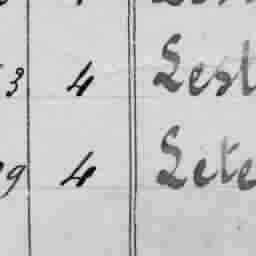 3 4 Lest
9 4 Lete